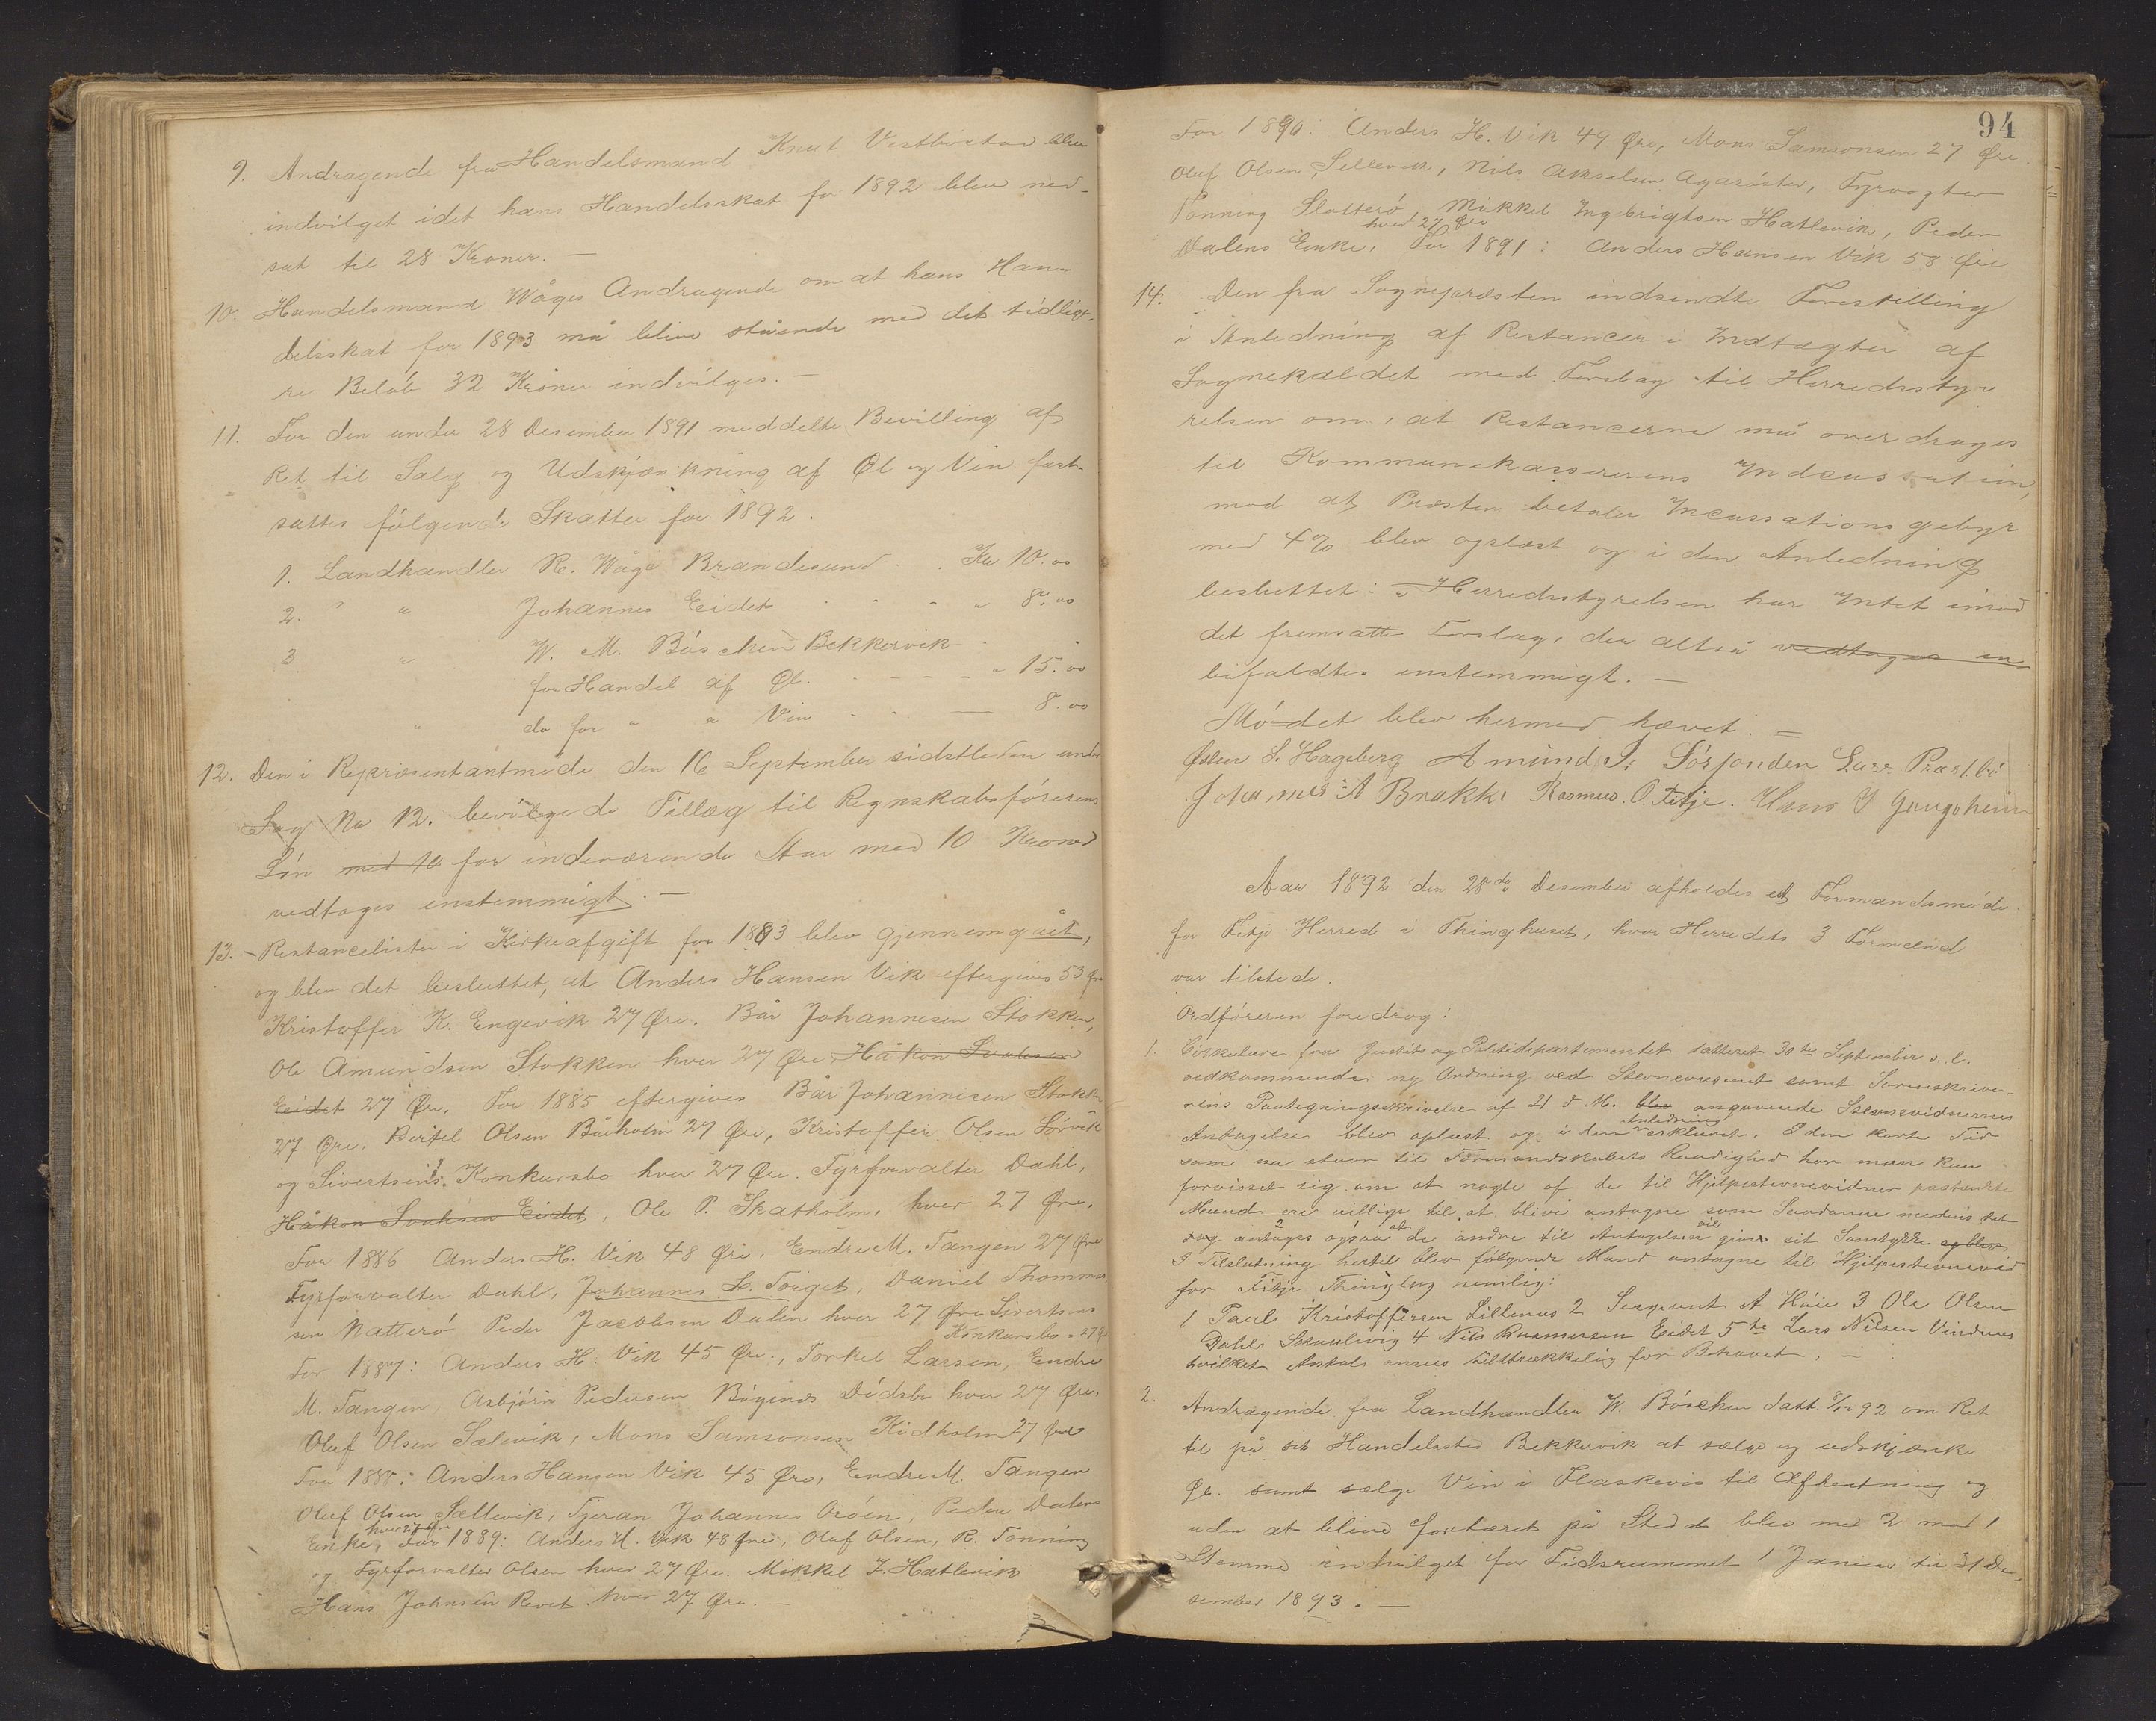 9. Andragende fra Handelsmand Knut Vestböstad blev
indvilget idet hans Handelsskat for 1892 blev ned-
sat til 28 Kroner. —
10. Handelsmand Wåges Andragende om at hans Han-
delsskat for 1893 må blive stående med det tidlige-
re Beløb 32 Kroner indvilges. —
11. For den under 28 Desember 1891 meddelte Bevilling af
Ret til Salg og Udskjænkning af Øl og Vin fast-
sattes følgende Skatter for 1892.
1. Landhandler R. Våge Brandesund . Kr 10.00
2. " " Johannes Eidet . . . " 8.00
3 " W. M. Böschen Bekkervik
for Handel af Øl. . . . " 15.00
" do for " " Vin . . — 8.00
12. Den i Repræsentantmøde den 16 September sidstleden under
Sag No 12. bevilgede Tillæg til Regnskabsförerens
Lön med 10 for indeværende Aar med 10 Kroner
vedtoges enstemmigt. —
13. Restancelister i Kirkeafgift for 1883 blev gjennemgået,
og blev det besluttet, at Anders Hansen Vik eftergives 53 Øre
Kristoffer K. Engevik 27 Øre. Bår Johannesen Stokken,
Ole Amundsen Stokken hver 27 Øre Håkon
Eidet 27 Øre. For 1885 eftergives Bår Johannesen Stokk
27 Øre. Bertel Olsen Bårholm 27 Øre, Kristoffer Olsen Sörvik
og Sivertsens Konkursbo hver 27 Øre. Fyrforvalter Dahl,
Håkon Eidet, Ole P. Skatholm, hver 27 Øre.
For 1886 Anders H. Vik 48 Øre. Endre M. Tangen 27 Øre
Fyrforvalter Dahl, Johannes L. Torget, Daniel Thommas
sen Natterö Peder Jacobsen Dalen hver 27 Øre Sivertsens
Konkursbo " 27 Ø
For 1887: Anders H. Vik 45 Øre., Torkel Larsen, Endre
M. Tangen, Asbjörn Pedersen Bögenes Dödsbo hver 27 Øre.
Oluf Olsen Sælevik, Mons Samsonsen Kidholm 27 Øre
For 1888: Anders Hansen Vik 45 Øre, Endre M. Tangen
Oluf Olsen Sællevik, Tjeran Johannes Oröen, Peder Dalens
hver 27 Øre
Enke, For 1889: Anders H. Vik 48 Øre, Oluf Olsen, R. Tonning
og Fyrforvalter Olsen hver 27 Øre. Mikkel I. Hatlevik
Hans Johnsen Revet hver 27 Øre. —
94
For 1890: Anders H. Vik 49 Øre, Mons Samsonsen 27 Øre.
Oluf Olsen Sellevik, Nils Akselsen Agasöster, Fyrvogter
Tonning Slotterö, Mikkel Ingebrigtsen Hatlevik, Peder
hver 27 Øre
Dalens Enke. For 1891: Anders Hansen Vik 58 Øre
14. Den fra Sognepræsten indsendte Forestilling
i Anledning af Restancer i Indtægter af
Sognekaldet med Forslag til Herredssty-
relsen om, at Restancerne må overdrages
til Kommunekassererens Indcassation,
mod at Præsten betaler Incassationsgebyr
med 4% blev oplæst og i den Anledning
besluttet: Herredsstyrelsen har Intet imod
det fremsatte Forslag, der altså vedtages en
bifaldtes enstemmigt. —
Mödet blev hermed hævet. —
Östen S. Hageberg Amund S. Sörfonden Lars Præstbö
Johannes A Brakke Rasmus O. Fitje. Hans J Gangsheim
Aar 1892 den 28de Desember afholdes et Formandsmöde
for Fitje Herred i Thinghuset, hvor Herredets 3 Formænd
var tilstede.
Ordföreren foredrog:
1. Cirkulære fra Justits og Politidepartementet datteret 30te September s. l.
vedkommende ny Ordning ved Stevnevæsenet samt Sorenskrive-
rens Paategningsskrivelse af 21 d. M. blev angaaende Stevnevidnernes
Anledning
Antagelse blev oplæst og i den erklæret. I den korte Tid
som nu staar til Formandskabets Raadighed har man kun
forvisset sig om at nogle af de til Hjelpestevnevidner paatænkte
Mænd ere villige til at blive antagne som Saadanne medens det
dog antages ogsaa at de andre til Antagelsen vil give sit Samtykke og blev
I Tilslutning hertil blev følgende Mænd antagne til Hjelpestevnevid
for Fitje Thinglag nemlig:
1 Paul Kristoffersen Lillenes 2 Sergeant A Höie 3 Ole Olsen
Dahle Skaalevig 4 Nils Rasmussen Eidet 5te Lars Nilsen Vindenes
hvilket Antal ansees tilstrækkelig for Behovet. —
2. Andragende fra Landhandler W. Böschen datt. 8/12 92 om Ret
til på sit Handelssted Bekkervik at sælge og udskjænke
Øl. samt sælge Vin i Flaskevis til Afhentning og
uden at blive fortæret på Stedet blev med 2 mod 1
Stemme indvilget for Tidsrummet 1 Januar til 31 De-
sember 1893. —